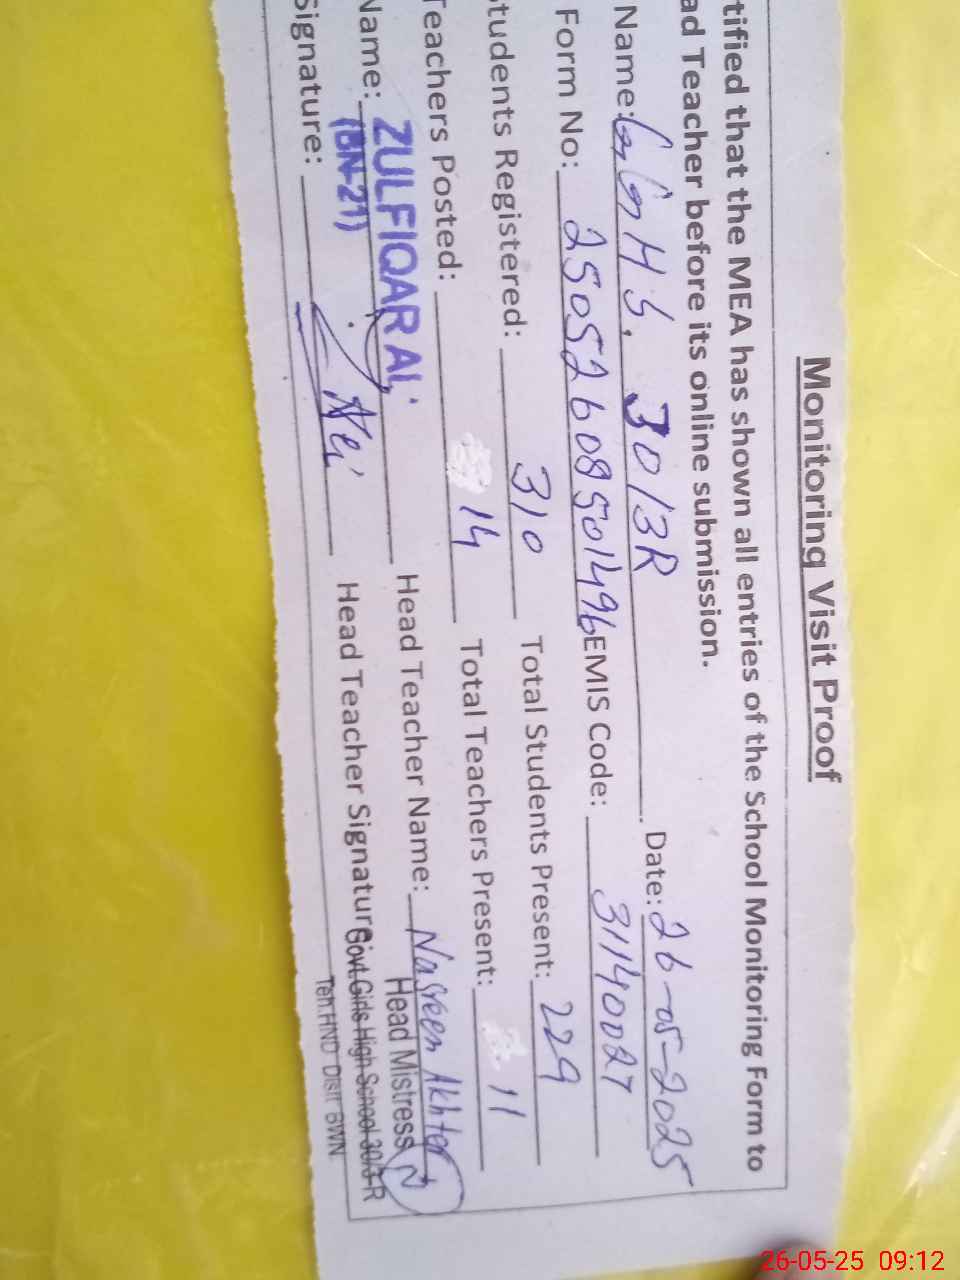 Monitoring Visit Proof
tified that the MEA has shown all entries of the School Monitoring Form to
ad Teacher before its online submission.
Name: GGHS. 30/3R Date: 26-05-2025
Form No: 25052608501496 EMIS Code: 31140027
tudents Registered: 310 Total Students Present: 229
Teachers Posted: 14 Total Teachers Present: 11
Name: ZULFIQAR ALI Head Teacher Name: Nasreen Akhter
(BN-21)
Head Mistress
Signature: Head Teacher Signature:
Govt.Girls High School 30/3-R
Teh.HND Distt BWN
26-05-25 09:12